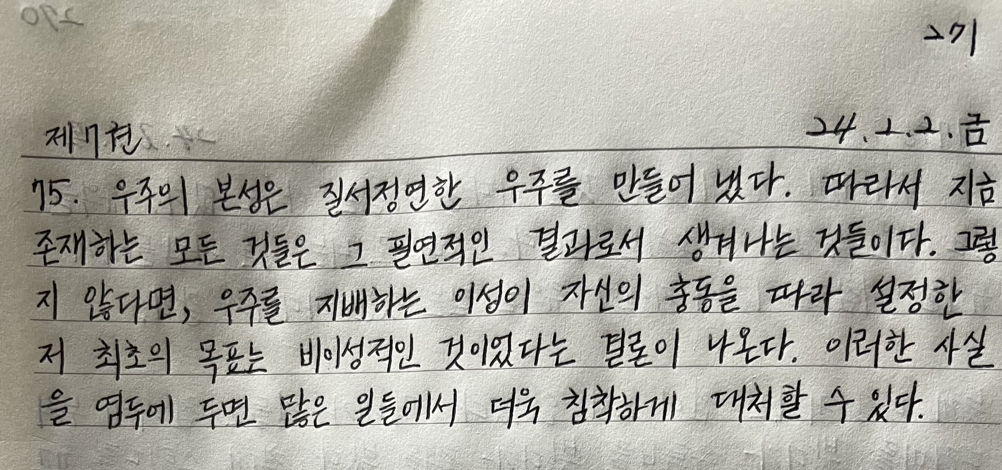 271
제7권 24.2.2.금
75. 우주의 본성은 질서정연한 우주를 만들어 냈다. 따라서 지금
존재하는 모든 것들은 그 필연적인 결과로서 생겨나는 것들이다. 그렇
지 않다면, 우주를 지배하는 이성이 자신의 충동을 따라 설정한
저 최초의 목표는 비이성적인 것이었다는 결론이 나온다. 이러한 사실
을 염두에 두면 많은 일들에서 더욱 침착하게 대처할 수 있다.